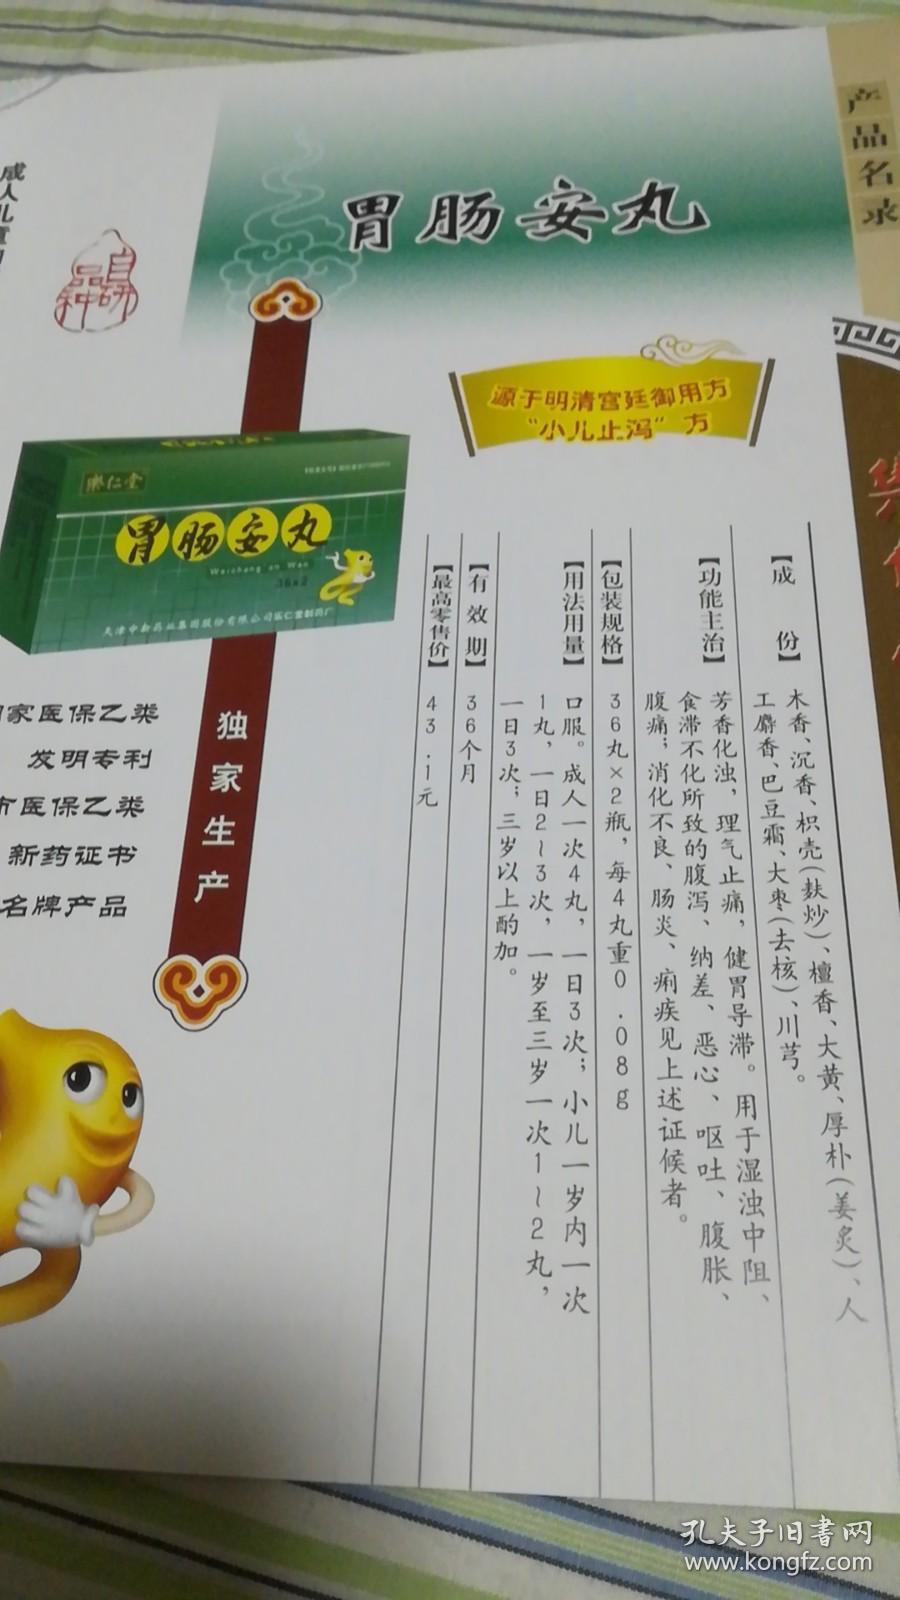 产品名录
胃肠安丸
成人儿童
自研
品种
源于明清宫廷御用方
“小儿止泻”方
樂仁堂
胃肠安丸
Weichang an Wan
36x2
天津中新药业集团股份有限公司乐仁堂制药厂
家医保乙类
发明专利
市医保乙类
新药证书
名牌产品
独家生产
【成 份】木香、沉香、枳壳(麸炒)、檀香、大黄、厚朴(姜炙)、人
工麝香、巴豆霜、大枣(去核)、川芎。
【功能主治】芳香化浊，理气止痛，健胃导滞。用于湿浊中阻、
食滞不化所致的腹泻、纳差、恶心、呕吐、腹胀、
腹痛；消化不良、肠炎、痢疾见上述证候者。
【包装规格】36丸×2瓶，每4丸重0.08g
【用法用量】口服。成人一次4丸，一日3次；小儿一岁内一次
1丸，一日2~3次，一岁至三岁一次1~2丸，
一日3次；三岁以上酌加。
【有效期】36个月
【最高零售价】43.1元
孔夫子旧书网
www.kongfz.com